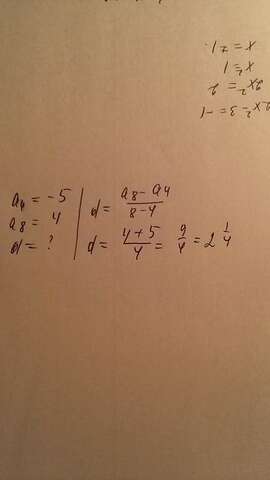 2x² - 3 = -1
2x² = 2
x² = 1
x = ±1.
a₄ = -5
a₈ = 4
d = ?
d = (a₈ - a₄)/(8 - 4)
d = (4 + 5)/4 = 9/4 = 2 1/4